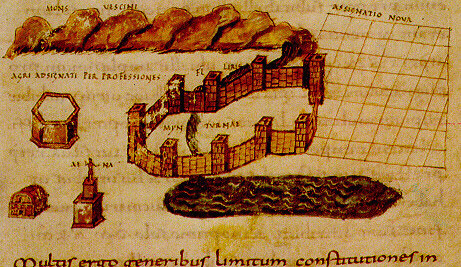 MONS VESCINI
ASSIGNATIO NOVA
FL LIRIS
AGRI ADSIGNATI PER PROFESSIONES
MIN TURNAE
Multis ergo generibus limitum constitutiones in